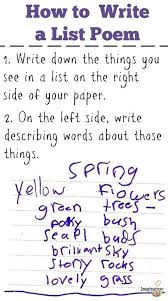 How to Write
a List Poem
1. Write down the things you
see in a list on the right
side of your paper.
2. On the left side, write
describing words about those
things.
Spring
Yellow Flowers
green trees
bush
buds
brilliant sky
stony rocks
lovely grass